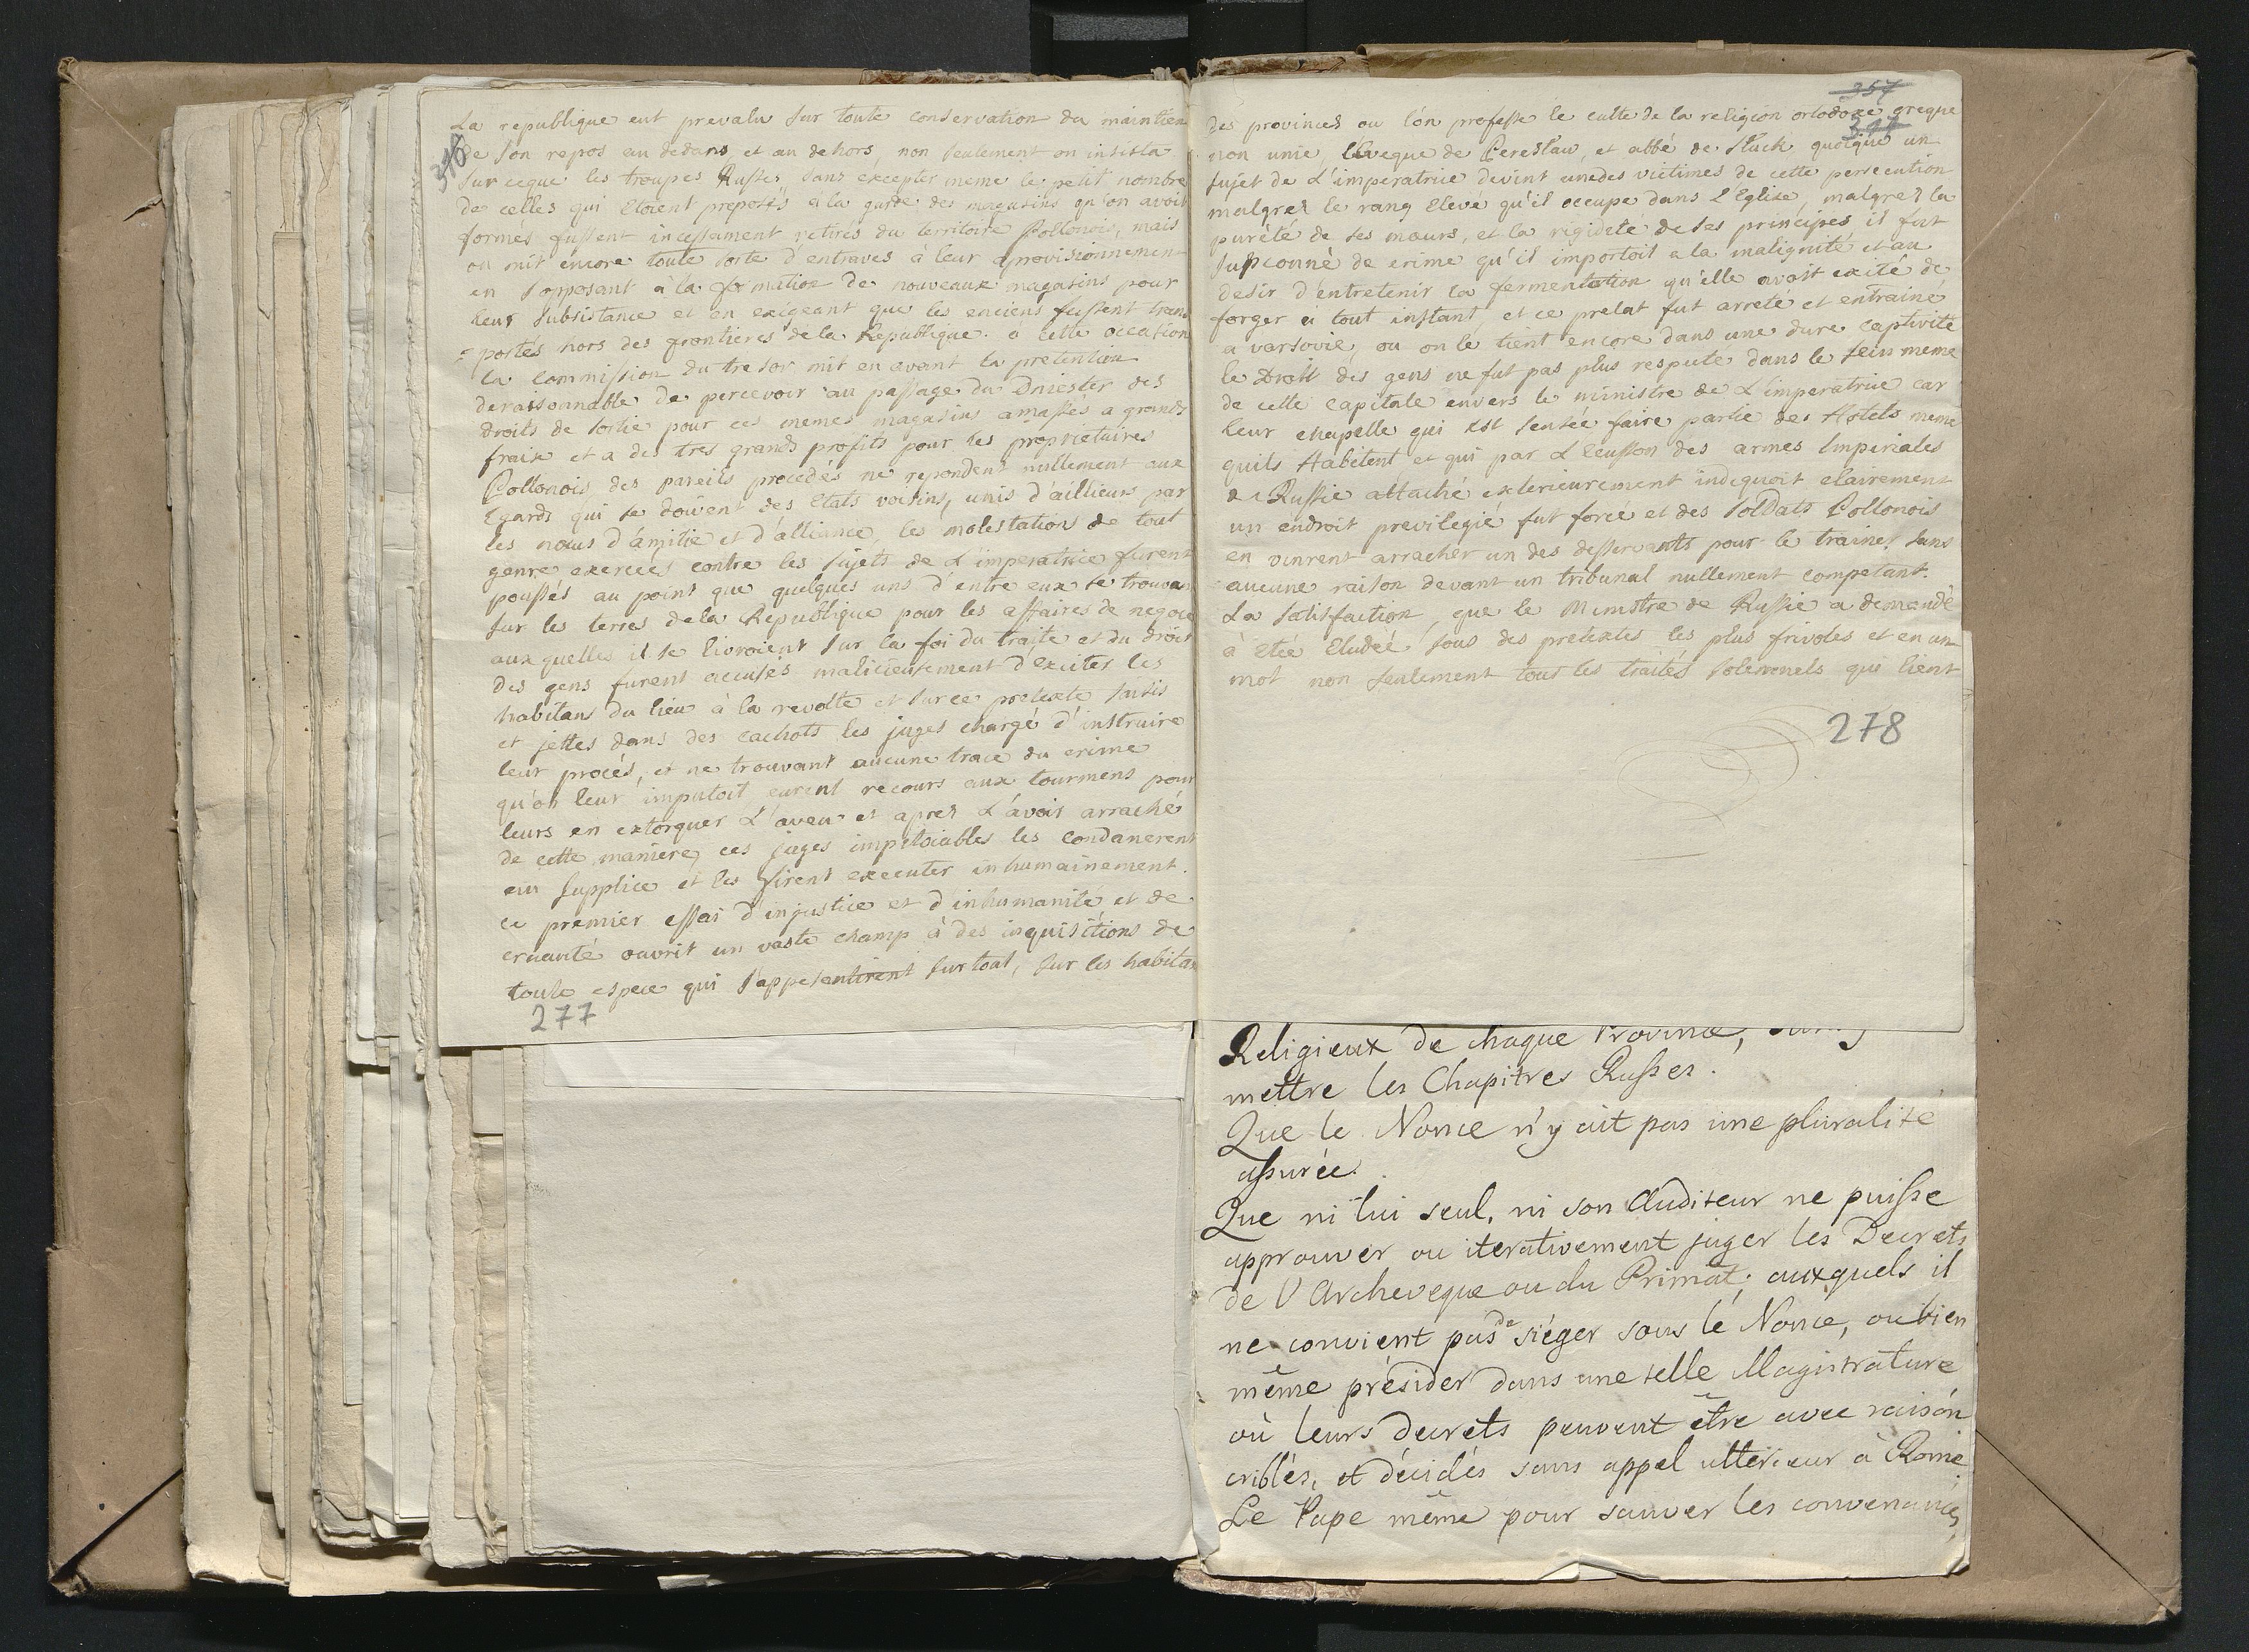 La republique eut prevalu sur toute conservation du maintien
376
de son repos au dedans, et au dehors, non seulement on insista
sur ceque les troupes Russes, sans excepter meme le petit nombre
de celles qui Etoient preposés a la garde des magasins qu'on avoit
formés fussent incessament retirés du territoire Pollonois, mais
on mit encore toute sorte d'entraves à leur aprovisionnement
en s'opposant a la formation de nouveaux magasins pour
leur subsistance et en exigeant que les enciens fussent trans
=portés hors des frontieres de la Republique. à cette occasion
la Commission du tresor mit en avant la pretention
deraisonnable de percevoir au passage du Dniester des
droits de sortie pour ces memes magasins amassés a grands
fraix et a des tres grands profits pour les proprietaires
Pollonois, des pareils procedés ne repondent nullement aux
Egards qui se doivent des Etats voisins, unis d'aillieurs par
les nœus d'amitie et d'alliance, les molestations de tout
genre exerceés contre les sujets de L'imperatrice furent
poussés au point que quelques uns d'entre eux se trouvan
sur les terres dela Republique pour les affaires de negoce
aux quelles il se livroient sur la foi du traite et du droit
des gens furent accusés malicieusement d'exciter les
habitans du lieu à la revolte et sur ce pretexte saisis
et jettes dans des cachots les juges chargé d'instruire
leur procés, et ne trouvant aucune trace du crime
qu'on leur imputoit eurent recours aux tourmens pour
leurs en extorquer L'aveu et apres L'avoir arraché
de cette maniere, ces juges impitoiables les condanerent
au supplice et les firent executer inhumainement.
ce premier essai d'injustice et d'inhumanité et de
cruauté ouvrit un vaste champ à des inquisitions de
toute espece qui s'appesentirent surtout, sur les habitan
277
357
des provinces ou l'on professe le culte de la religion ortodoxe greque
377
non unie, l'Eveque de Pereslaw, et abbé de Sluck quoique un
sujet de L'imperatrice devint unedes victimes de cette persecution
malgres le rang Elevé qu'il occupe dans l'Eglise, malgres la
pureté de ses mœurs, et la rigideté de ses principes il fut
supçonné de crime qu'il importoit a la malignité et au
desir d'entretenir la fermentation qu'elle avoit exité de
forger a tout instant et ce prelat fut arreté et entrainé
a varsovie, ou on le tient encore dans une dure captivité
le Droit des gens ne fut pas plus respecte dans le sein meme
de cette Capitale envers le ministre de L'imperatrice car
leur chapelle qui est sensée faire partie des Hotels meme
quils Habitent et qui par L'Ecusson des armes Imperiales
de Russie attaché exterieurement indiquoit clairement
un endroit previlegié fut forcé et des soldats Pollonois
en vinrent arracher un des desservants pour le trainer sans
aucune raison devant un tribunal nullement competant.
La satisfaction, que le Ministre de Russie a demandé
à Eteé Eludeé sous des pretextes les plus frivoles et en un
mot non seulement tous les traités solemnels qui lient
278
Religieux de chaque Province,
mettre les Chapitres Russes.
Que le Nonce n'y ait pas une pluralité
assurée.
Que ni lui seul, ni son Auditeur ne puisse
approuver ou iterativement juger les Decrets
de l'Archeveque ou du Primat; auxquels il
ne convient pas de siéger sous le Nonce, ou bien
même présider dans une telle Magistrature
où leurs Decrets peuvent être avec raison
criblés, et décidés sans appel ulterieur à Rome.
Le Pape même pour sauver les convenances,